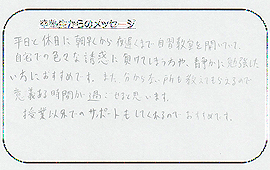 卒業生からのメッセージ
平日と休日に朝早くから夜遅くまで自習教室を開いていて、
自宅での色々な誘惑に負けてしまう方や、静かに勉強したい
い方におすすめです。また、分からない所も教えてもらえるので
意義ある時間が過ごせると思います。
授業以外でのサポートもしてくれるのでおすすめです。